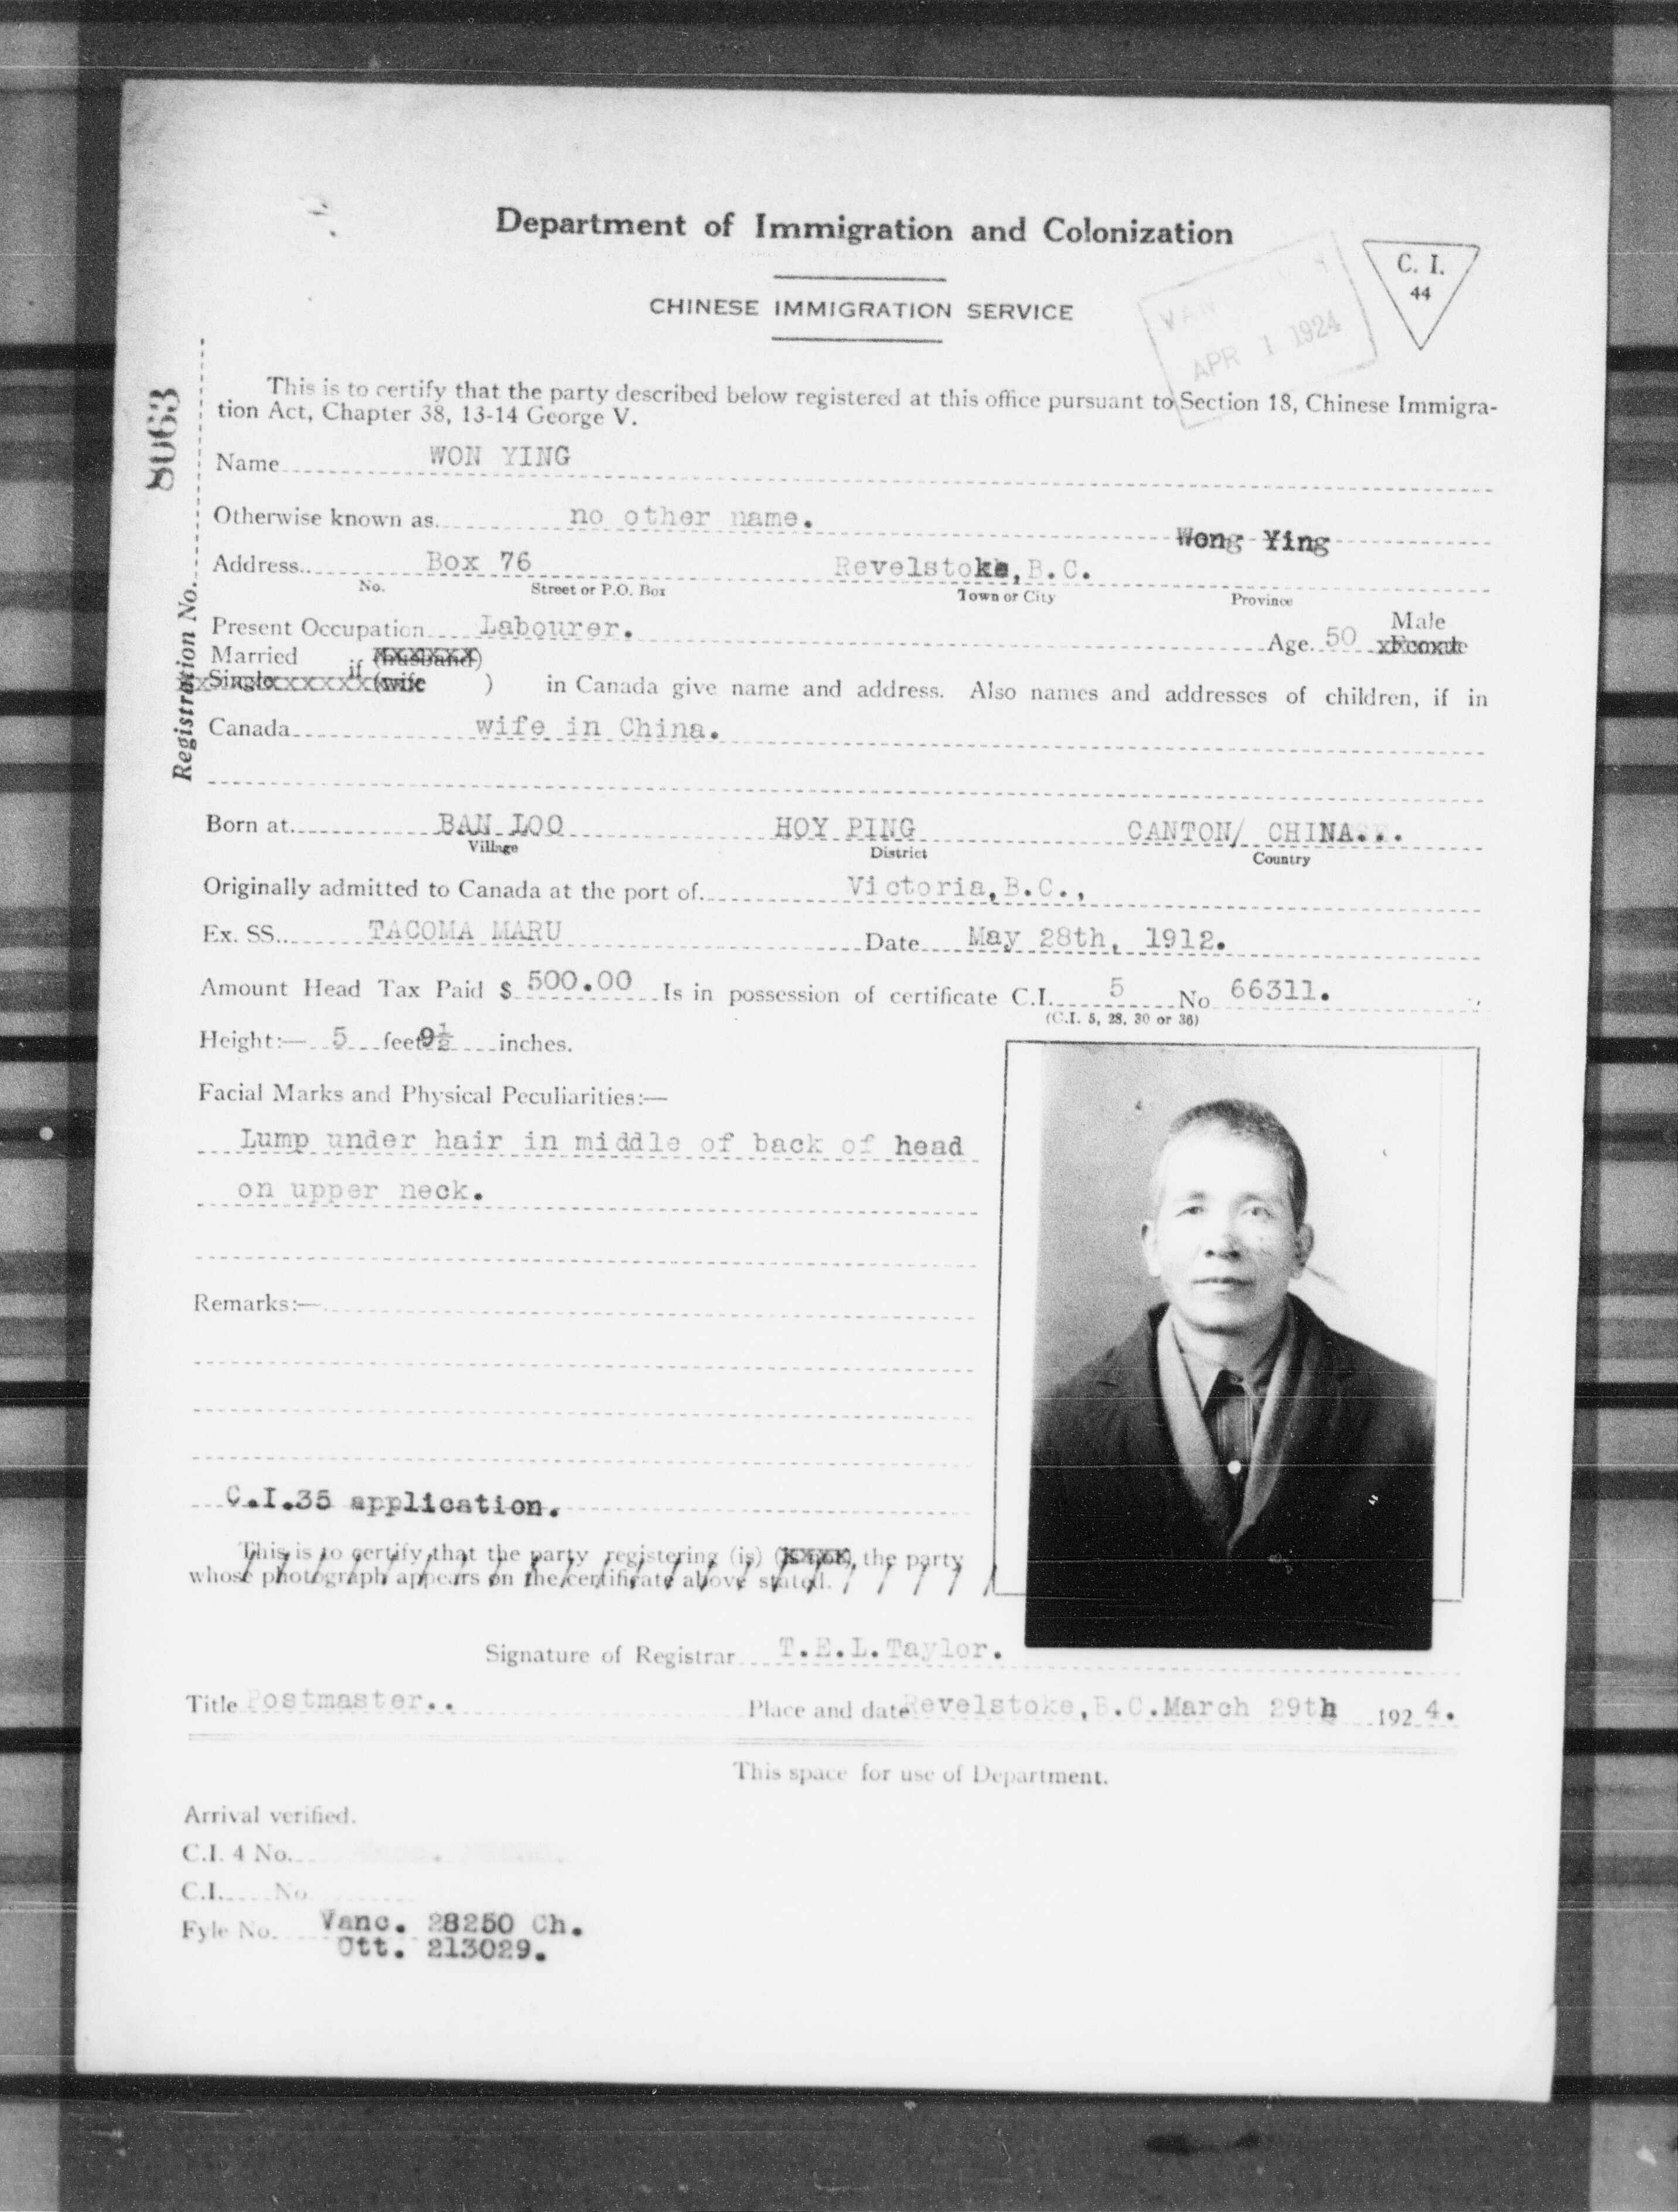 Department of Immigration and Colonization
C. I.
44
CHINESE IMMIGRATION SERVICE
APR 1 1924
8063
Registration No.
This is to certify that the party described below registered at this office pursuant to Section 18, Chinese Immigra-
tion Act, Chapter 38, 13-14 George V.
Name WON YING
Otherwise known as no other name.
Wong Ying
Address Box 76 Revelstoke, B.C.
No. Street or P.O. Box Town or City Province
Present Occupation Labourer. Age 50 Male
Married if (husband)
Single (wife ) in Canada give name and address. Also names and addresses of children, if in
Canada wife in China.
Born at BAN LOO HOY PING CANTON/ CHINA...
Village District Country
Originally admitted to Canada at the port of Victoria, B.C.,
Ex. SS. TACOMA MARU Date May 28th, 1912.
Amount Head Tax Paid $ 500.00 Is in possession of certificate C.I. 5 No 66311.
(C.I. 5, 28, 30 or 36)
Height:— 5 feet 9½ inches.
Facial Marks and Physical Peculiarities:—
Lump under hair in middle of back of head
on upper neck.
Remarks:—
C.I.35 application.
This is to certify that the party registering (is) the party
whose photograph appears on the certificate above stated.
Signature of Registrar T.E.L.Taylor.
Title Postmaster.. Place and date Revelstoke, B.C. March 29th 1924.
This space for use of Department.
Arrival verified.
C.I. 4 No.
C.I. No
Fyle No. Vanc. 28250 Ch.
Ott. 213029.